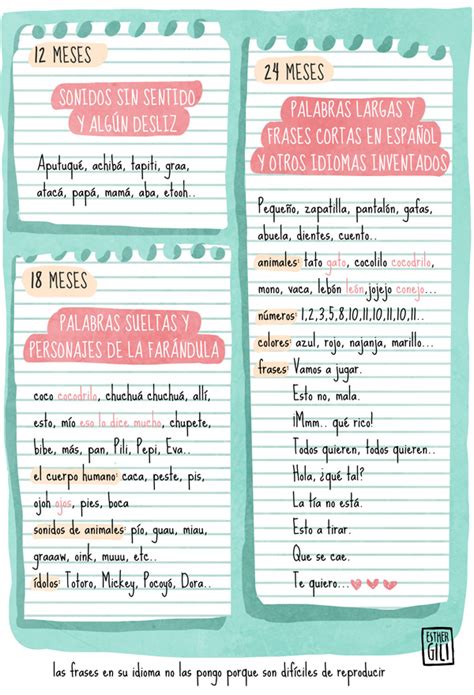 12 MESES
SONIDOS SIN SENTIDO
Y ALGÚN DESLIZ
Aputuqué, achibá, tapiti, graa,
atacá, papá, mamá, aba, etooh..
18 MESES
PALABRAS SUELTAS Y
PERSONAJES DE LA FARÁNDULA
coco cocodrilo, chuchuá chuchuá, allí,
esto, mío eso lo dice mucho, chupete,
bibe, más, pan, Pili, Pepi, Eva..
el cuerpo humano: caca, peste, pis,
ojoh ojos, pies, boca
sonidos de animales: pío, guau, miau,
graaaw, oink, muuu, etc..
ídolos: Totoro, Mickey, Pocoyó, Dora..
24 MESES
PALABRAS LARGAS Y
FRASES CORTAS EN ESPAÑOL
Y OTROS IDIOMAS INVENTADOS
Pequeño, zapatilla, pantalón, gafas,
abuela, dientes, cuento..
animales: tato gato, cocolilo cocodrilo,
mono, vaca, lebón león, jojejo conejo...
números: 1,2,3,5,8,10,11,10,11,10,11..
colores: azul, rojo, naranja, marillo...
frases: Vamos a jugar.
Esto no, mala.
¡Mmm.. qué rico!
Todos quieren, todos quieren..
Hola, ¿qué tal?
La tía no está.
Esto a tirar.
Que se cae.
Te quiero...
ESTHER
GILI
las frases en su idioma no las pongo porque son difíciles de reproducir